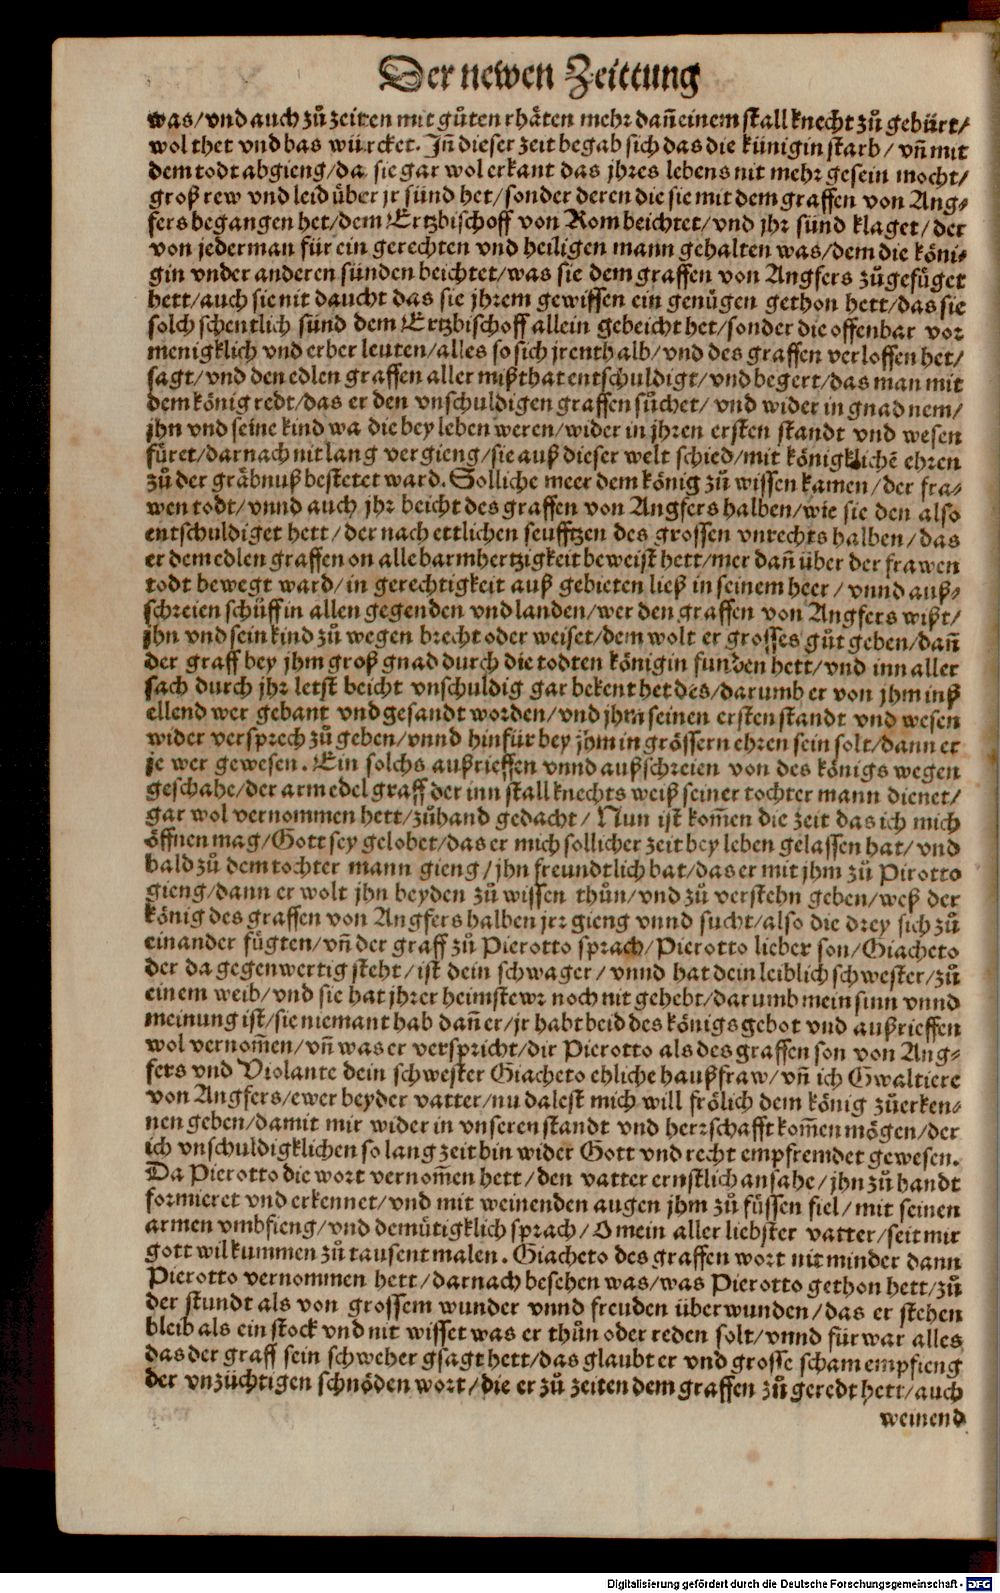 Der newen Zeittung
was/vnd auch zů zeiten mit gůten rhäten mehr dañ einem stall knecht zů gebürt/
wol thet vnd bas würcket. Jñ dieser zeit begab sich das die künigin starb/ vñ mit
dem todt abgieng/da sie gar wol erkant das jhres lebens nit mehr gesein mocht/
groß rew vnd leid über jr sünd het/sonder deren die sie mit dem graffen von Ang⸗
fers begangen het/dem Ertzbischoff von Rom beichtet/vnd jhr sünd klaget/der
von jederman für ein gerechten vnd heiligen mann gehalten was/dem die köni⸗
gin vnder anderen sünden beichtet/was sie dem graffen von Angfers zůgefůget
hett/auch sie nit daucht das sie jhrem gewissen ein genůgen gethon hett/das sie
solch schentlich sünd dem Ertzbischoff allein gebeicht het/sonder die offenbar vor
menigklich vnd erber leuten/alles so sich jrenthalb/vnd des graffen verloffen het/
sagt/vnd den edlen graffen aller mißthat entschuldigt/vnd begert/das man mit
dem könig redt/das er den vnschuldigen graffen sůchet/ vnd wider in gnad nem/
jhn vnd seine kind wa die bey leben weren/wider in jhren ersten standt vnd wesen
füret/darnach nit lang vergieng/sie auß dieser welt schied/mit königklichẽ ehren
zů der gräbnuß bestetet ward. Solliche meer dem könig zů wissen kamen/der fra⸗
wen todt/vnnd auch jhr beicht des graffen von Angfers halben/wie sie den also
entschuldiget hett/der nach ettlichen seufftzen des grossen vnrechts halben/das
er dem edlen graffen on alle barmhertzigkeit beweist hett/mer dañ über der frawen
todt bewegt ward/in gerechtigkeit auß gebieten ließ in seinem heer/ vnnd auß⸗
schreien schůff in allen gegenden vnd landen/wer den graffen von Angfers wißt/
jhn vnd sein kind zů wegen brecht oder weiset/dem wolt er grosses gůt geben/dañ
der graff bey jhm groß gnad durch die todten königin funden hett/vnd inn aller
sach durch jhr letst beicht vnschuldig gar bekent het des/darumb er von jhm inß
ellend wer gebant vnd gesandt worden/vnd jhm seinen ersten standt vnd wesen
wider versprech zů geben/vnnd hinfür bey jhm in grössern ehren sein solt/dann er
je wer gewesen. Ein solchs außrieffen vnnd außschreien von des königs wegen
geschahe/der arm edel graff der inn stall knechts weiß seiner tochter mann dienet/
gar wol vernommen hett/zůhand gedacht/ Nun ist kom̃en die zeit das ich mich
öffnen mag/Gott sey gelobet/das er mich sollicher zeit bey leben gelassen hat/vnd
bald zů dem tochter mann gieng/jhn freundtlich bat/das er mit jhm zů Pirotto
gieng/dann er wolt jhn beyden zů wissen thůn/vnd zů verstehn geben/weß der
könig des graffen von Angfers halben jrr gieng vnnd sucht/also die drey sich zů
einander fůgten/vñ der graff zů Pierotto sprach/Pierotto lieber son/Giacheto
der da gegenwertig steht/ist dein schwager/vnnd hat dein leiblich schwester/zů
einem weib/vnd sie hat jhrer heimstewr noch nit gehebt/darumb mein sinn vnnd
meinung ist/sie niemant hab dañ er/jr habt beid des königs gebot vnd außrieffen
wol vernom̃en/vñ was er verspricht/dir Pierotto als des graffen son von Ang⸗
fers vnd Violante dein schwester Giacheto ehliche haußfraw/vñ ich Gwaltiere
von Angfers/ewer beyder vatter/nu dalest mich will frölich dem könig zůerken⸗
nen geben/damit mir wider in vnseren standt vnd herrschafft kom̃en mögen/der
ich vnschuldigklichen so lang zeit bin wider Gott vnd recht empfremdet gewesen.
Da Pierotto die wort vernom̃en hett/den vatter ernstlich ansahe/jhn zů handt
formieret vnd erkennet/vnd mit weinenden augen jhm zů füssen fiel/mit seinen
armen vmbfieng/vnd demůtigklich sprach/O mein aller liebster vatter/seit mir
gott wilkummen zů tausent malen. Giacheto des graffen wort nit minder dann
Pierotto vernommen hett/darnach besehen was/was Pierotto gethon hett/zů
der stundt als von grossem wunder vnnd freuden überwunden/das er stehen
bleib als ein stock vnd nit wisset was er thůn oder reden solt/vnnd für war alles
das der graff sein schweher gsagt hett/das glaubt er vnd grosse scham empfieng
der vnzüchtigen schnöden wort/die er zů zeiten dem graffen zů geredt hett/auch
weinend
Digitalisierung gefördert durch die Deutsche Forschungsgemeinschaft - DFG